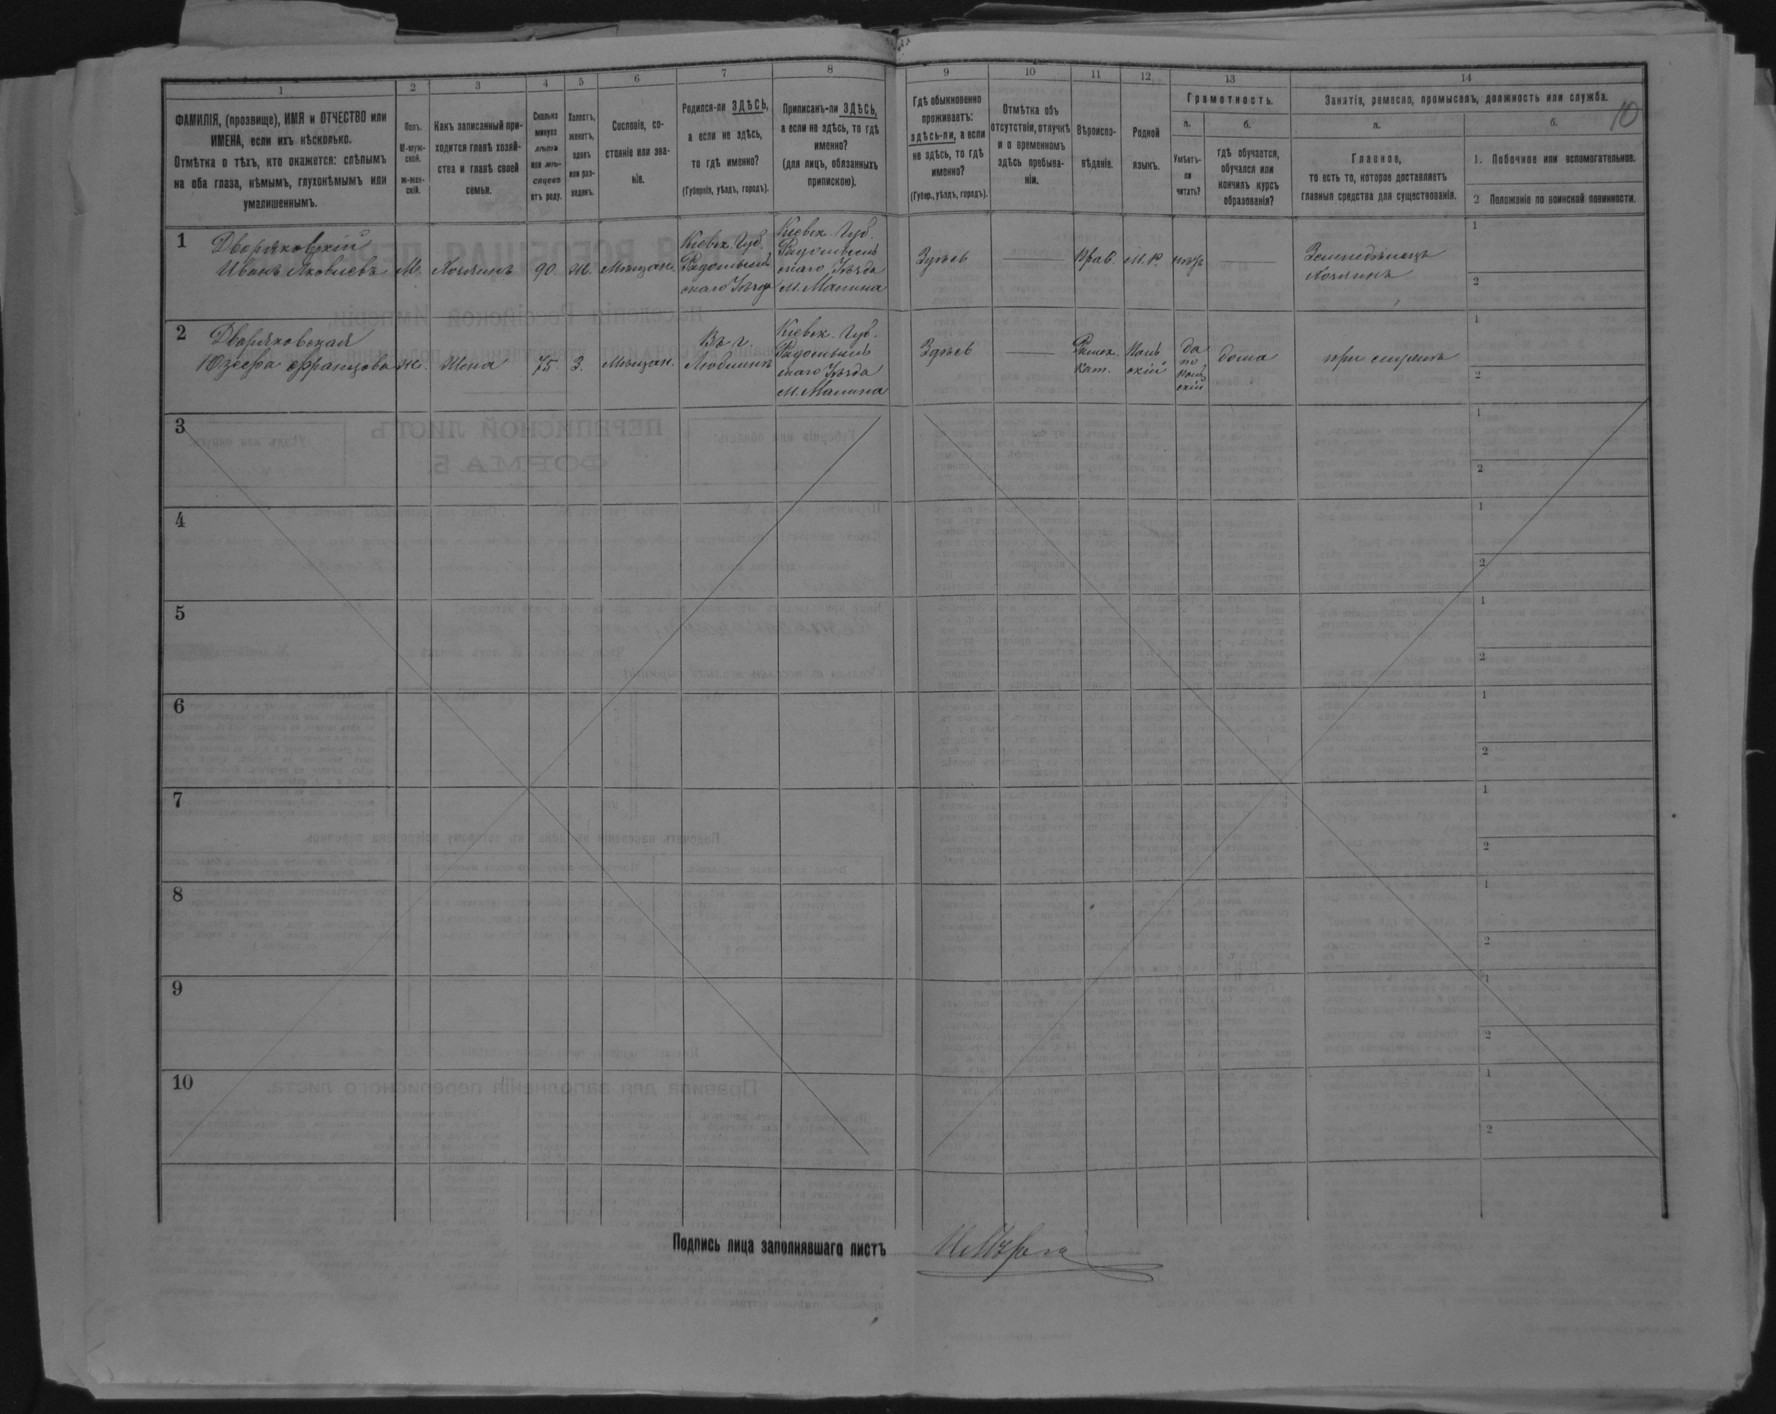 1 2 3 4 5 6 7 8 9 10 11 12 13 14
10
ФАМИЛІЯ, (прозвище), ИМЯ и ОТЧЕСТВО или
ИМЕНА, если ихъ нѣсколько.
Отмѣтка о тѣхъ, кто окажется: слѣпымъ
на оба глаза, нѣмымъ, глухонѣмымъ или
умалишеннымъ.
Полъ.
М-муж-
ской.
ж-жен-
скій.
Какъ записанный при-
ходится главѣ хозяй-
ства и главѣ своей
семьи.
Сколько
минуло
лѣтъ
или мѣ-
сяцевъ
отъ роду.
Холостъ,
женатъ,
вдовъ
или раз-
веденъ.
Сословіе, со-
стояніе или зва-
ніе.
Родился-ли ЗДѢСЬ,
а если не здѣсь,
то гдѣ именно?
(Губернія, уѣздъ, городъ).
Приписанъ-ли ЗДѢСЬ,
а если не здѣсь, то гдѣ
именно?
(для лицъ, обязанныхъ
припискою).
Гдѣ обыкновенно
проживаетъ:
здѣсь-ли, а если
не здѣсь, то гдѣ
именно?
(Губер., уѣздъ, городъ).
Отмѣтка объ
отсутствіи, отлучкѣ
и о временномъ
здѣсь пребыва-
ніи.
Вѣроиспо-
вѣданіе.
Родной
языкъ.
Грамотность.
а.
Умѣетъ-
ли
читать?
б.
гдѣ обучается,
обучался или
кончилъ курсъ
образованія?
Занятія, ремесло, промыселъ, должность или служба.
а.
Главное,
то есть то, которое доставляетъ
главныя средства для существованія.
б.
1. Побочное или вспомогательное.
2 Положеніе по воинской повинности.
1
Дворяковскій
Иванъ Яковлевъ
М.
Хозяинъ
90.
ж.
Мѣщан.
Кіевск. Губ.
Радомысль
скаго Уѣзда
Кіевск. Губ.
Радомысль
скаго Уѣзда
м. Малина
Здѣсь
Прав.
М. Р.
нѣтъ
Земледѣлецъ
Хозяинъ
1
2
2
Дворяковская
Юзефа Францова
ж.
Жена
75
З.
Мѣщан.
Въ г.
Люблинѣ
Кіевск. Губ.
Радомысль
скаго Уѣзда
м. Малина
Здѣсь
Римск.
Кат.
Поль
скій
да
по
поль
скій
дома
при мужѣ
1
2
3
1
2
4
1
2
5
1
2
6
1
2
7
1
2
8
1
2
9
1
2
10
1
2
Подпись лица заполнявшаго листъ